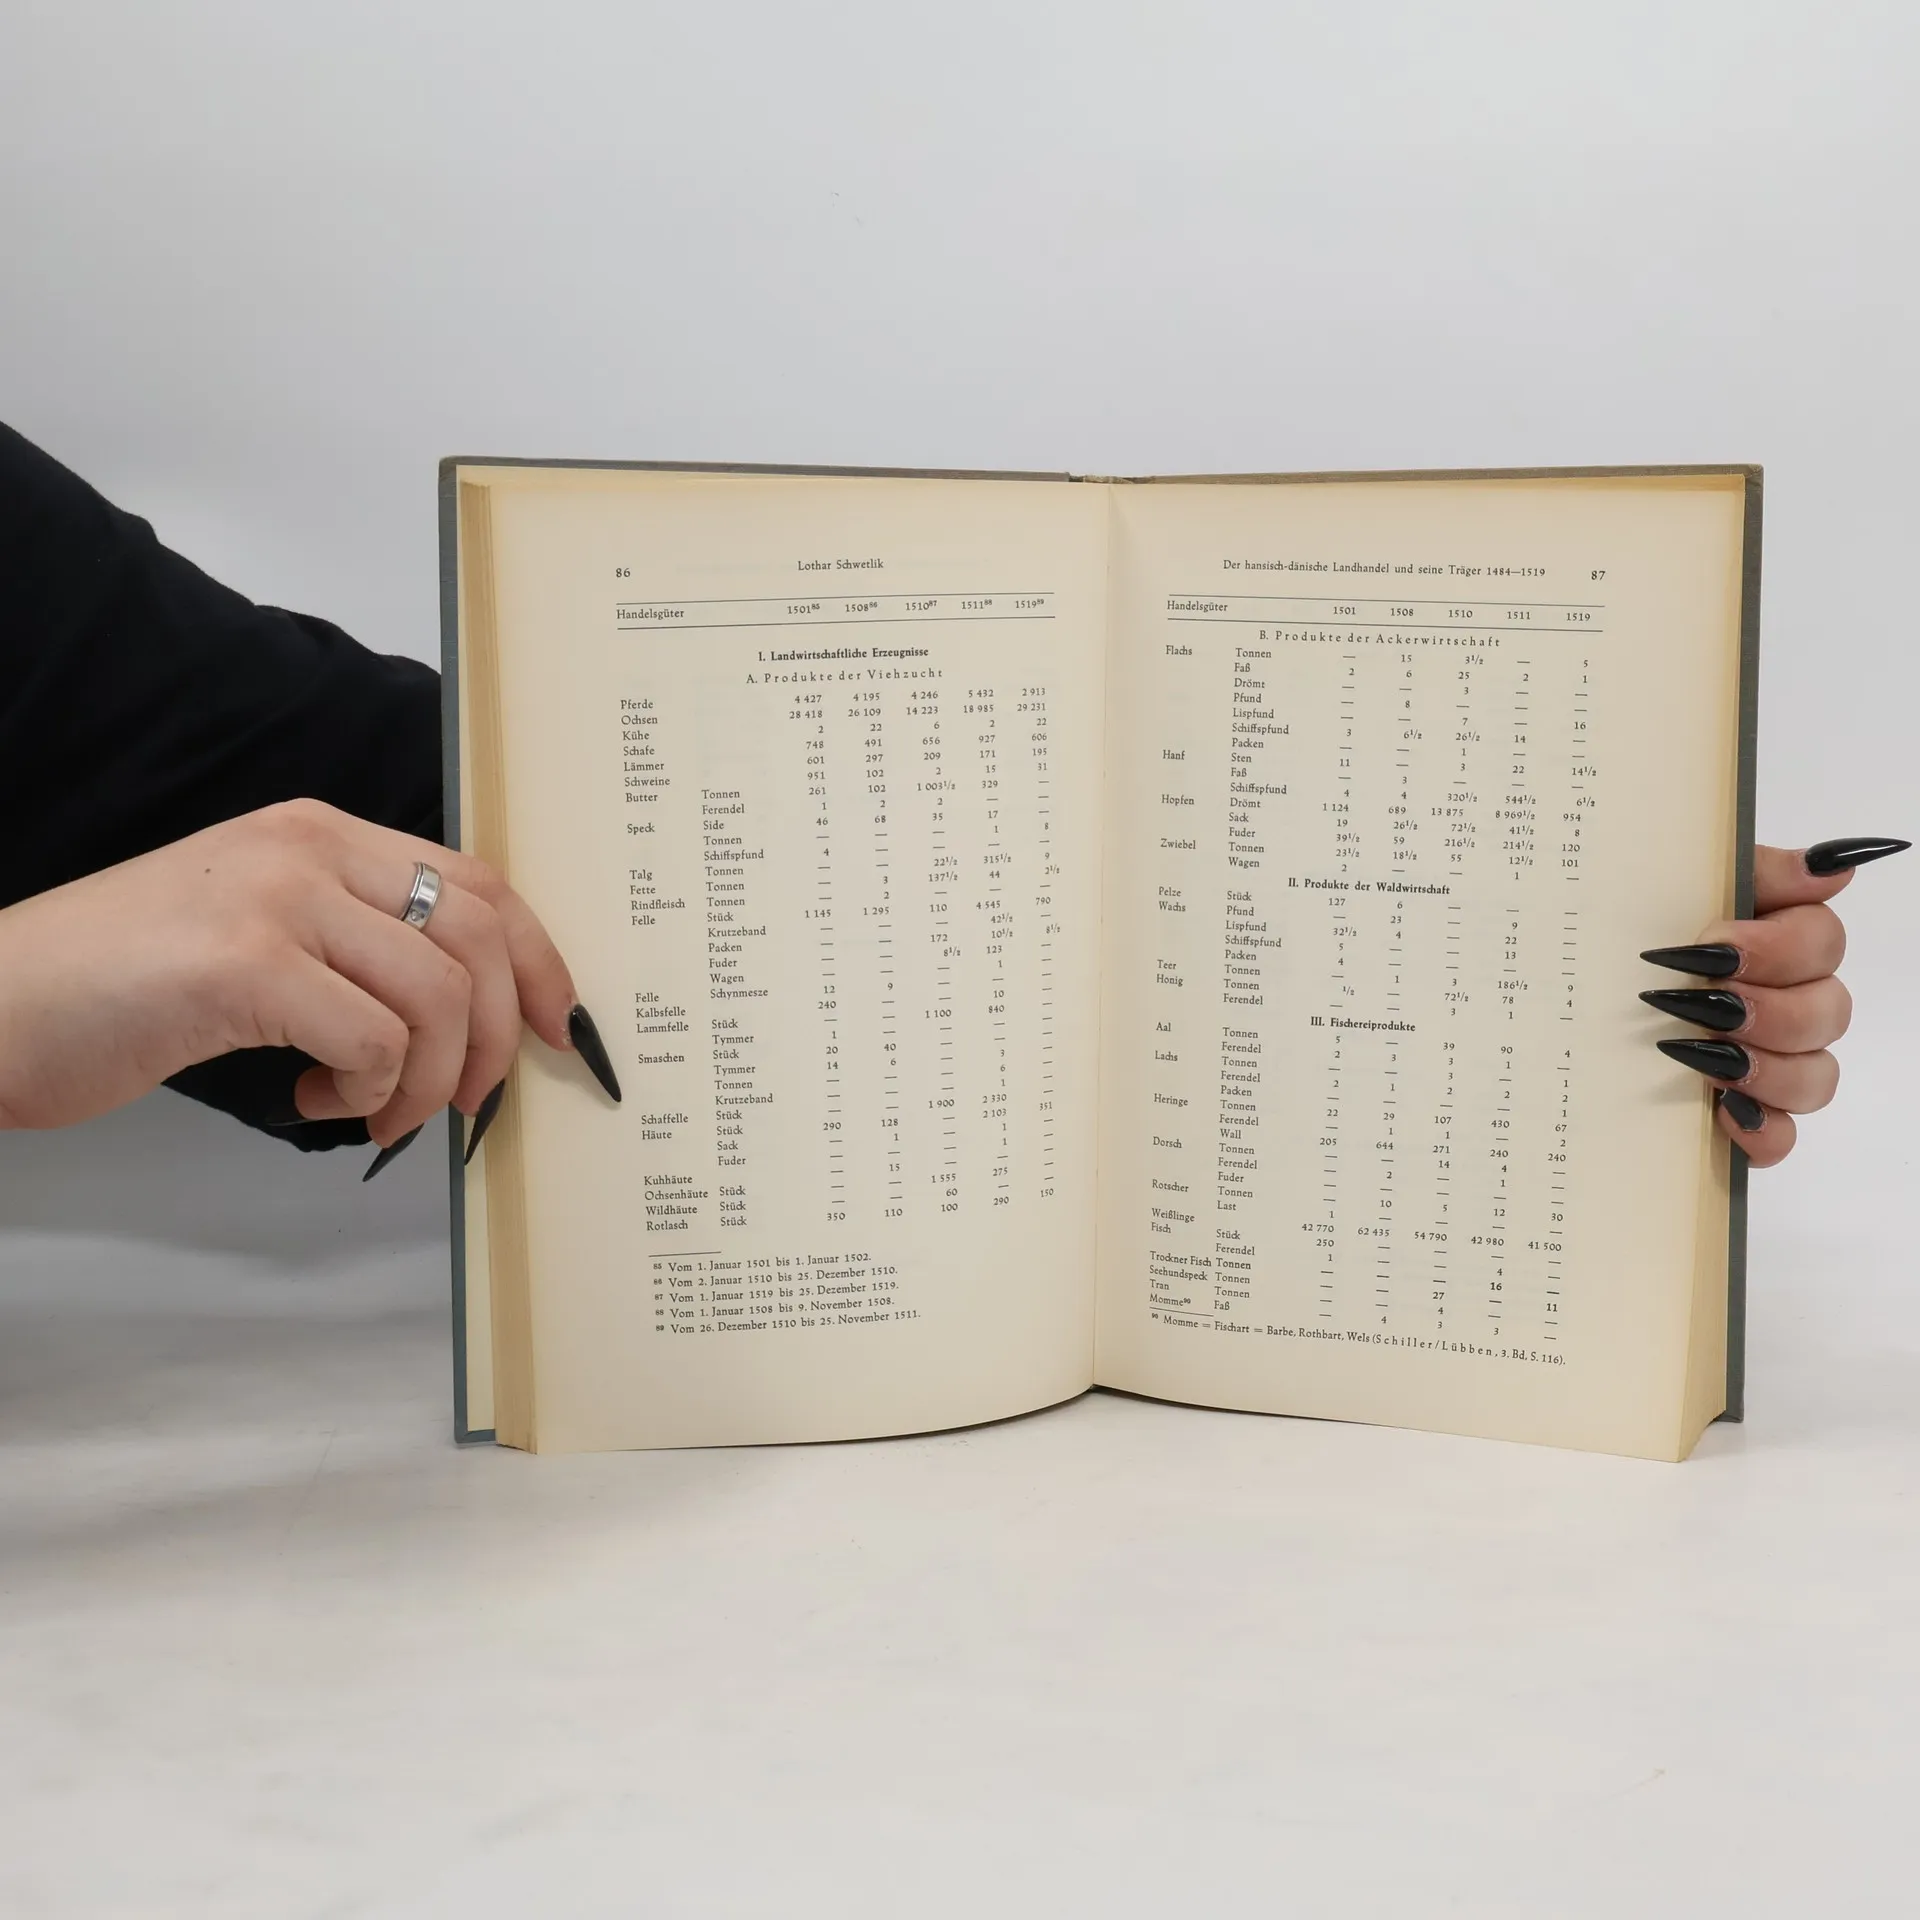 86 Lothar Schwetlik
Handelsgüter 1501⁸⁵ 1508⁸⁶ 1510⁸⁷ 1511⁸⁸ 1519⁸⁹
I. Landwirtschaftliche Erzeugnisse
A. Produkte der Viehzucht
Pferde 4 427 4 195 4 246 5 432 2 913
Ochsen 28 418 26 109 14 223 18 985 29 231
Kühe 2 22 6 2 22
Schafe 748 491 656 927 606
Lämmer 601 297 209 171 195
Schweine 951 102 2 15 31
Butter Tonnen 261 102 1 003¹/₂ 329 —
Ferendel 1 2 2 — —
Speck Side 46 68 35 17 —
Tonnen — — — 1 8
Schiffspfund 4 — — — —
Talg Tonnen — — 22¹/₂ 315¹/₂ 9
Fette Tonnen — 3 137¹/₂ 44 2¹/₂
Rindfleisch Tonnen — 2 — — —
Felle Stück 1 145 1 295 110 4 545 790
Krutzeband — — — 42¹/₂ —
Packen — — 172 10¹/₂ 8¹/₂
Fuder — — 8¹/₂ 123 —
Wagen — — — 1 —
Felle Schynmesze 12 9 — — —
Kalbsfelle 240 — — 10 —
Lammfelle Stück — — 1 100 840 —
Tymmer 1 — — — —
Smaschen Stück 20 40 — — —
Tymmer 14 6 — 3 —
Tonnen — — — 6 —
Krutzeband — — — 1 —
Schaffelle Stück — — 1 900 2 330 —
Häute Stück 290 128 — 2 103 351
Sack — 1 — 1 —
Fuder — — — 1 —
Kuhhäute — 15 — — —
Ochsenhäute Stück — — 1 555 275 —
Wildhäute Stück — — 60 — —
Rotlasch Stück 350 110 100 290 150
⁸⁵ Vom 1. Januar 1501 bis 1. Januar 1502.
⁸⁶ Vom 2. Januar 1510 bis 25. Dezember 1510.
⁸⁷ Vom 1. Januar 1519 bis 25. Dezember 1519.
⁸⁸ Vom 1. Januar 1508 bis 9. November 1508.
⁸⁹ Vom 26. Dezember 1510 bis 25. November 1511.
Der hansisch-dänische Landhandel und seine Träger 1484—1519 87
Handelsgüter 1501 1508 1510 1511 1519
B. Produkte der Ackerwirtschaft
Flachs Tonnen — 15 3¹/₂ — 5
Faß 2 6 25 2 1
Drömt — — 3 — —
Pfund — 8 — — —
Lispfund — — 7 — 16
Schiffspfund 3 6¹/₂ 26¹/₂ 14 —
Packen — — 1 — —
Hanf Sten 11 — 3 22 14¹/₂
Faß — 3 — — —
Schiffspfund 4 4 320¹/₂ 544¹/₂ 6¹/₂
Hopfen Drömt 1 124 689 13 875 8 969¹/₂ 954
Sack 19 26¹/₂ 72¹/₂ 41¹/₂ 8
Fuder 39¹/₂ 59 216¹/₂ 214¹/₂ 120
Zwiebel Tonnen 23¹/₂ 18¹/₂ 55 12¹/₂ 101
Wagen 2 — — 1 —
II. Produkte der Waldwirtschaft
Pelze Stück 127 6 — — —
Wachs Pfund — 23 — 9 —
Lispfund 32¹/₂ 4 — 22 —
Schiffspfund 5 — — 13 —
Packen 4 — — — —
Teer Tonnen — 1 3 186¹/₂ 9
Honig Tonnen ¹/₂ — 72¹/₂ 78 4
Ferendel — — 3 1 —
III. Fischereiprodukte
Aal Tonnen 5 — 39 90 4
Ferendel 2 3 3 1 —
Lachs Tonnen — — 3 — 1
Ferendel 2 1 2 2 2
Packen — — — — 1
Heringe Tonnen 22 29 107 430 67
Ferendel — 1 1 — 2
Wall 205 644 271 240 240
Dorsch Tonnen — — 14 4 —
Ferendel — 2 — 1 —
Fuder — — — — —
Rotscher Tonnen — 10 5 12 30
Last 1 — — — —
Weißlinge Stück 42 770 62 435 54 790 42 980 41 500
Fisch Ferendel 250 — — — —
Trockner Fisch Tonnen 1 — — 4 —
Seehundspeck Tonnen — — — 16 —
Tran Tonnen — — 27 — 11
Faß — — 4 —
Momme⁹⁰ — 4 3 3 —
⁹⁰ Momme = Fischart = Barbe, Rothbart, Wels (Schiller/Lübben, 3. Bd, S. 116).